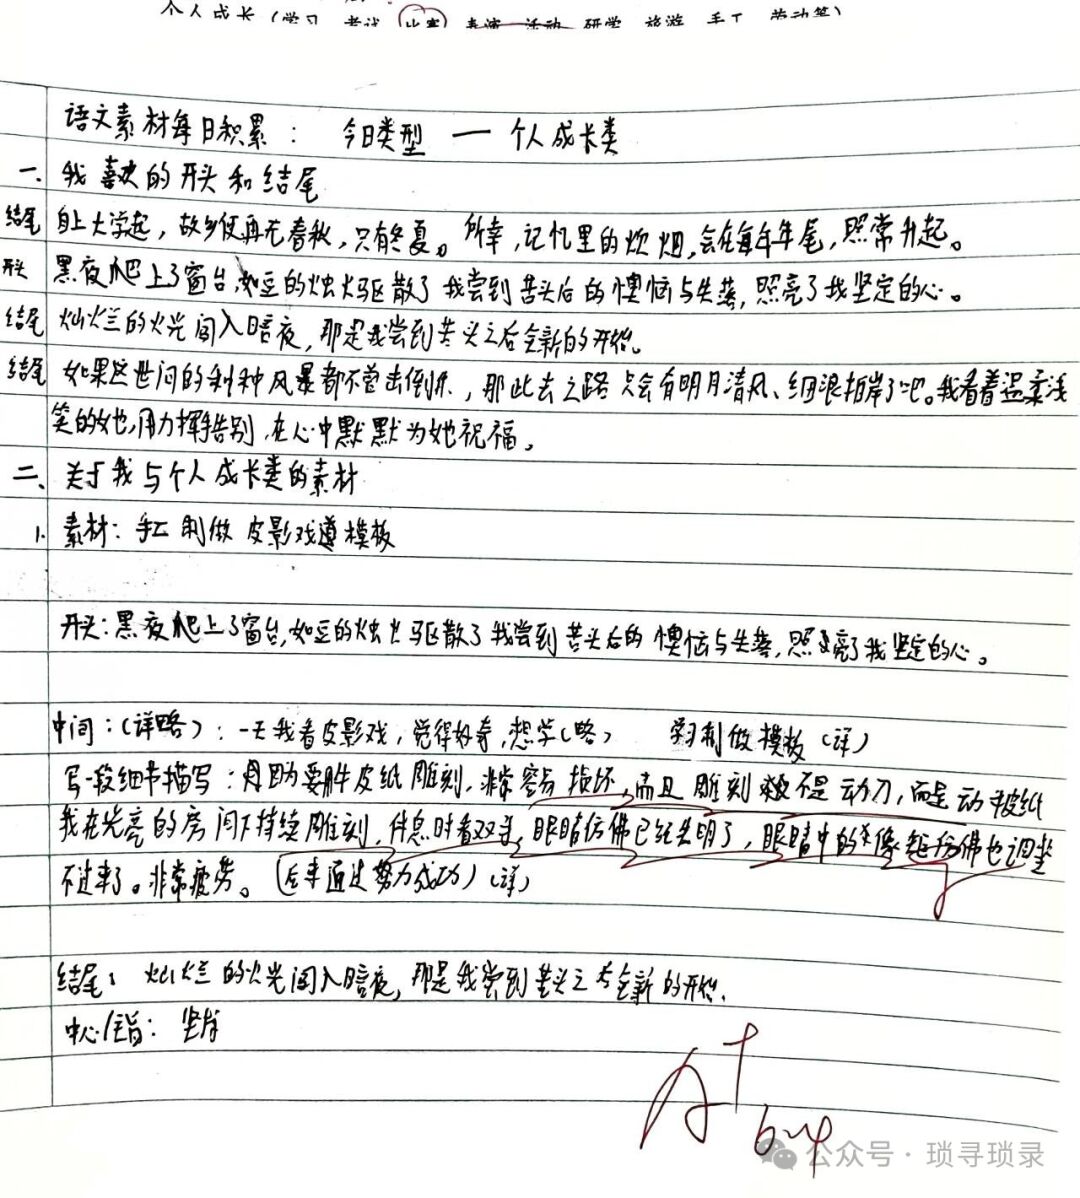 个人成长（学习 考试 比赛 表演 活动 研学 旅游 手工 劳动等）
语文素材每日积累： 今日类型 — 个人成长类
一、我喜欢的开头和结尾
结尾 自上大学起，故乡便再无春秋，只有冬夏。所幸，记忆里的炊烟，会在每年年尾，照常升起。
开头 黑夜爬上了窗台，如豆的烛火驱散了我尝到苦头后的懊恼与失落，照亮了我坚定的心。
结尾 灿烂的火光闯入暗夜，那是我尝到苦头之后全新的开始。
结尾 如果这世间的种种风暴都不曾击倒你，那此去之路只会有明月清风、细浪拍岸了吧。我看着温柔浅
笑的她，用力挥手告别，在心中默默为她祝福。
二、关于我与个人成长类的素材
1. 素材：手工制做皮影戏道模板
开头：黑夜爬上了窗台，如豆的烛火驱散了我尝到苦头后的懊恼与失落，照亮了我坚定的心。
中间：（详略）：一天我看皮影戏，觉得好奇，想学（略） 学习制做模板（详）
写一段细节描写：因为要用牛皮纸雕刻，非常容易损坏，而且雕刻不是动刀，而是动被纸
我在光亮的房间下持续雕刻，休息时看双手，眼睛仿佛已经失明了，眼睛中的仿佛也调整
不过来了。非常疲劳。（后来通过努力成功）（详）
结尾：灿烂的火光闯入暗夜，那是我尝到苦头之后全新的开始.
中心主旨：坚持
A+
公众号·琐寻琐录